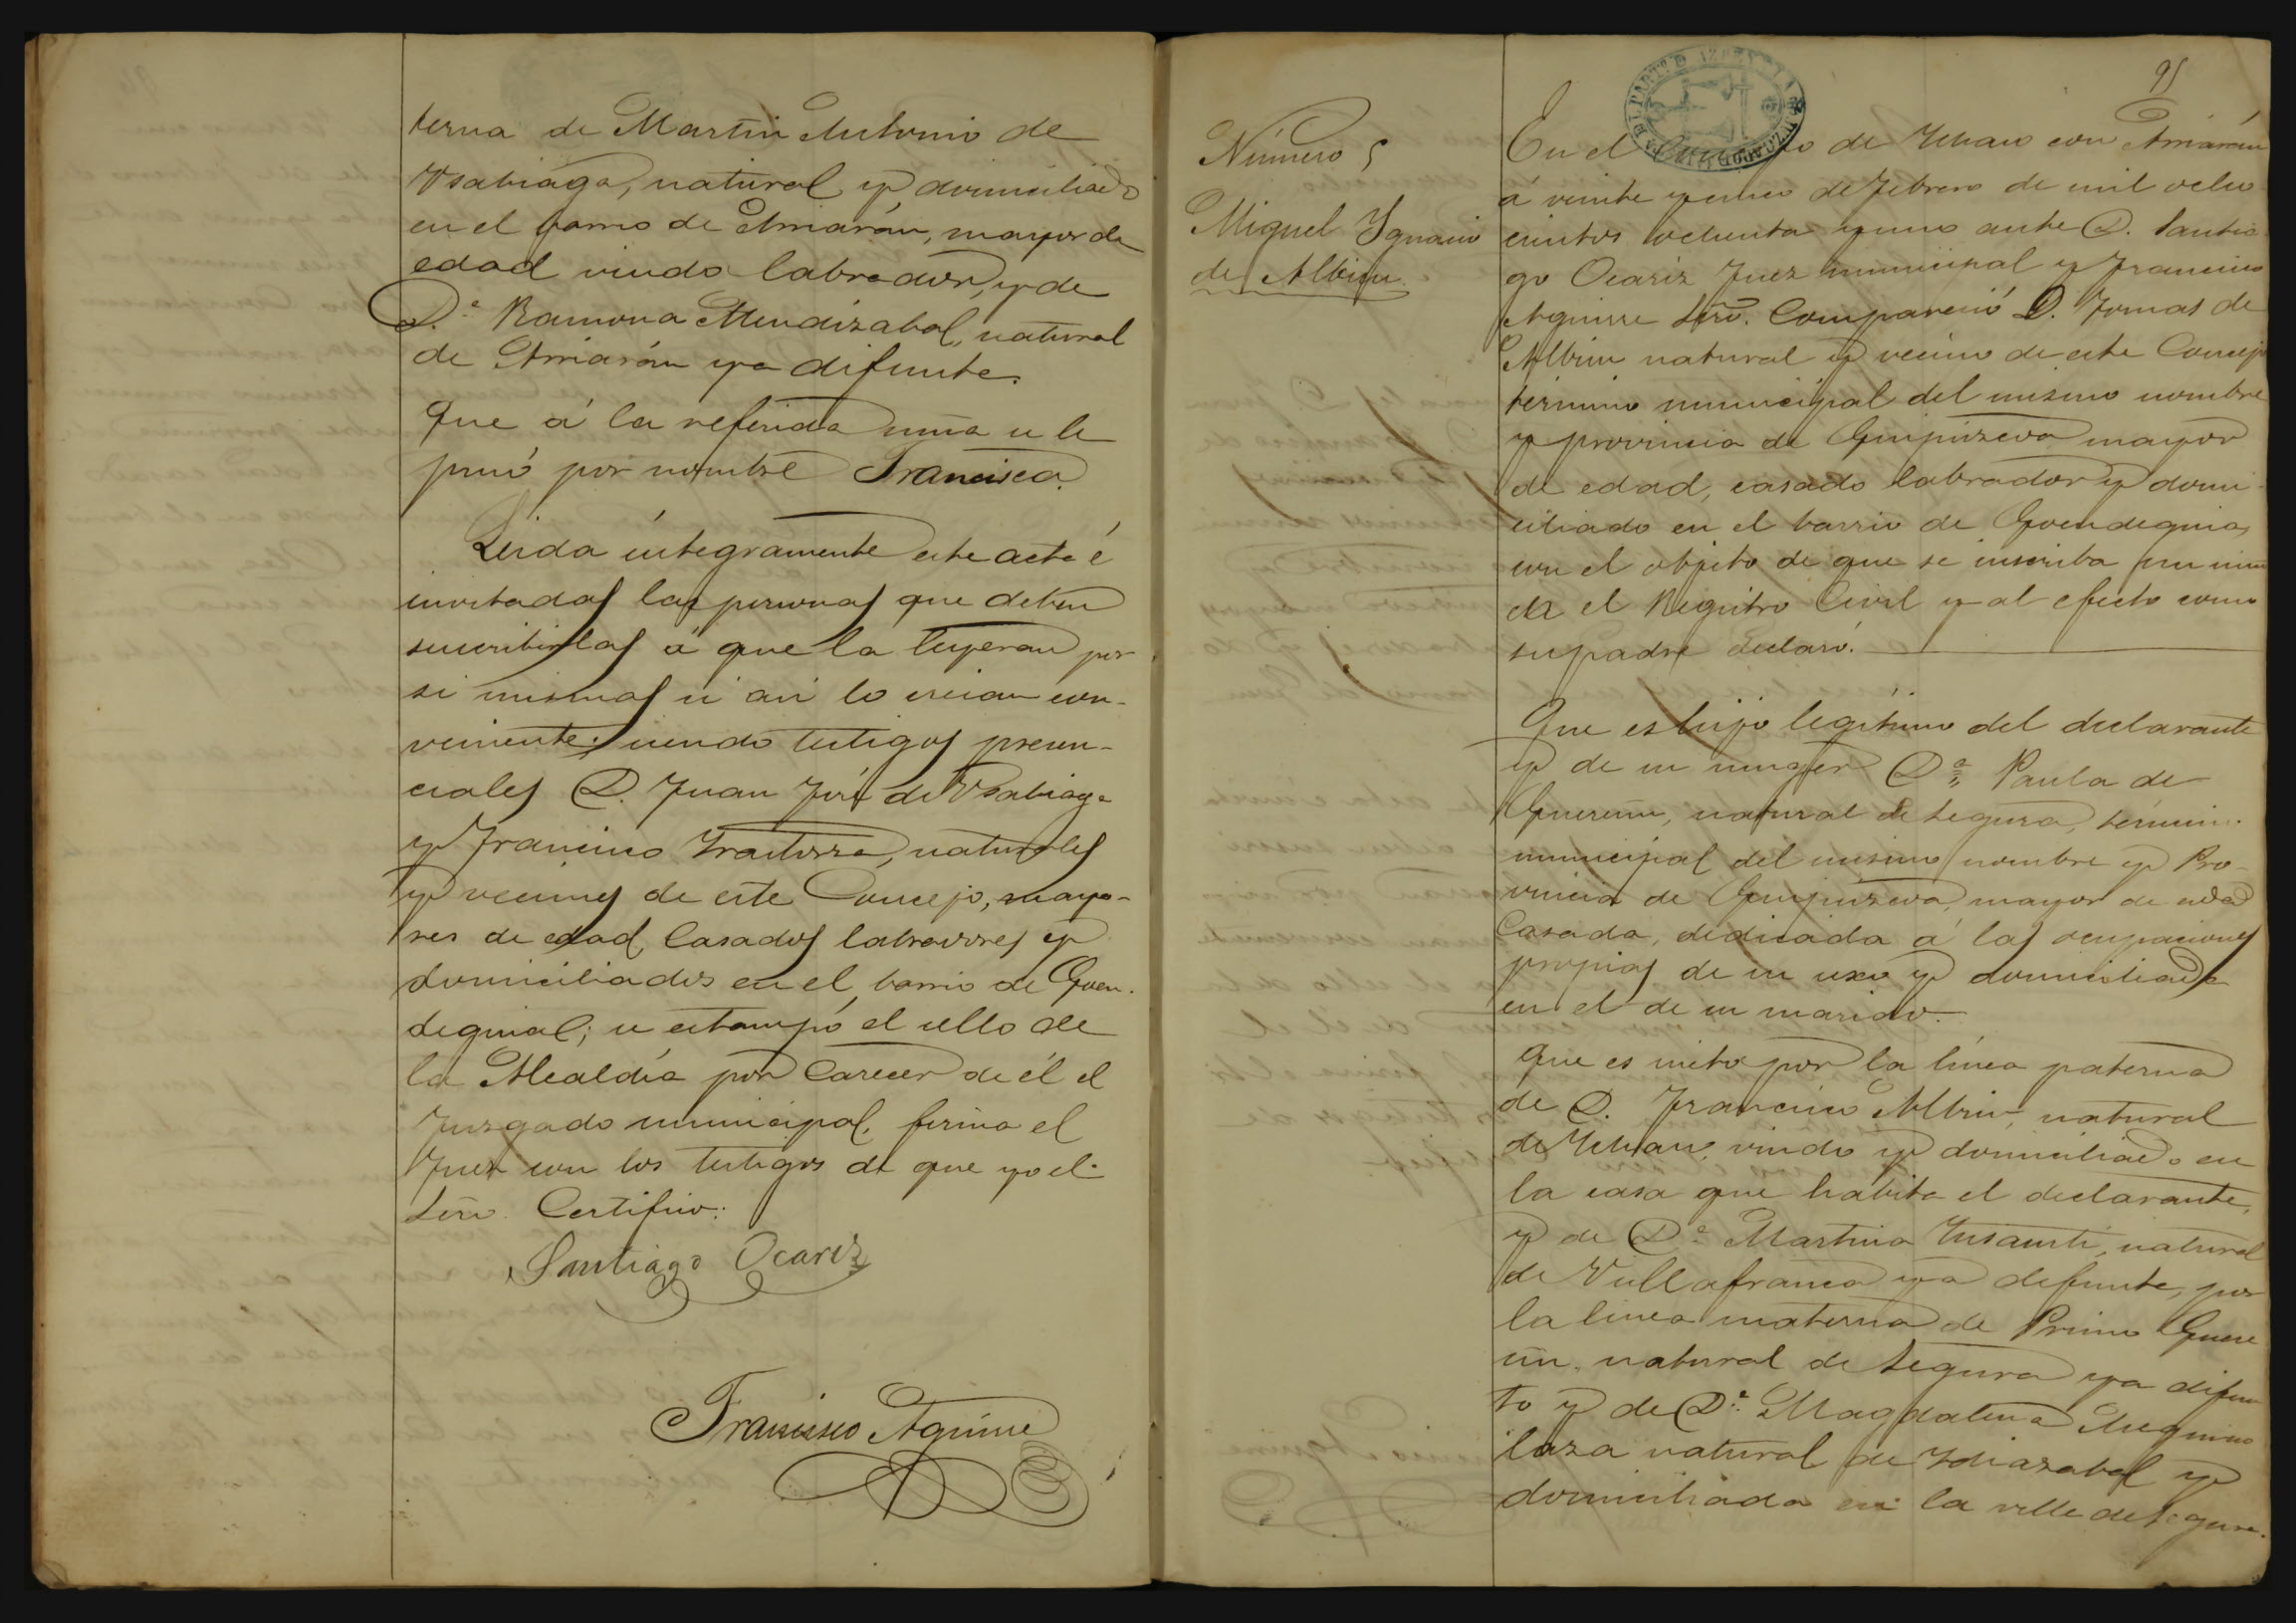 terna de Martin Antonio de
Ysabiaga, natural y domiciliado
en el barrio de Arriarán, mayor de
edad viudo labrador, y de
D.ª Ramona Mendizabal, natural
de Arriarán ya difunte.
Que á la referida niña se le
puso por nombre Francisca.
Leida íntegramente este acta é
invitadas las personas que deben
suscribirlas á que la leyeran por
si mismas si asi lo creian con-
veniente, siendo testigos presen-
ciales D. Juan José de Ysabiaga
y Francisco Yrastorza, naturales
y vecinos de este Concejo, mayo-
res de edad, Casados labradores y
domiciliados en el barrio de Goen-
deguial; se estampó el sello de
la Alcaldía por Carecer de él el
Juzgado municipal, firma el
Juez con los testigos de que yo el
Srio. Certifico:
Santiago Ocariz
Francisco Aguirre
95
Número 5
Miguel Ygnacio
de Albisu
PARTº D AZPEITIA
En el de Ychaso con Arriarán
á veinte y cinco de Febrero de mil ocho
cientos ochenta y uno ante D. Santia
go Ocariz Juez municipal y Francisco
Aguirre Srio. Compareció D. Tomas de
Albisu natural y vecino de este Concejo
término municipal del mismo nombre
y provincia de Guipúzcoa mayor
de edad, casado labrador y domi-
ciliado en el barrio de Goendeguia,
con el objeto de que se inscriba un niño
de el Registro Civil y al efecto como
su padre declaró.
Que es hijo legítimo del declarante
y de su muger D.ª Paula de
Guereñu, natural de Segura, término
municipal del mismo nombre y Pro-
vincia de Guipúzcoa, mayor de edad
Casada, dedicada á las ocupaciones
propias de su sexo y domiciliada
en el de su marido.
Que es nieto por la línea paterna
de D. Francisco Albisu, natural
de Ychaso, viudo y domiciliado en
la casa que habita el declarante,
y de D.ª Martina natural
de Villafranca ya difunte, por
la línea materna de Primo Guere
ñu, natural de Segura ya difun
to y de D.ª Magdalena Aseguino
laza natural de Ydiazabal y
domiciliada en la villa de Segura.